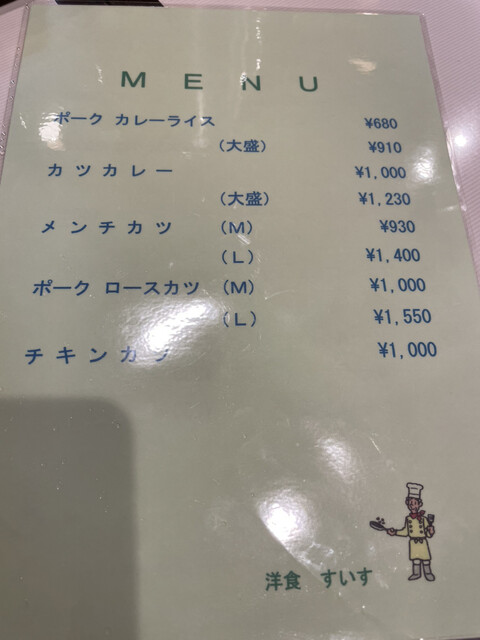 MENU
ポーク カレーライス ¥680
(大盛) ¥910
カツカレー ¥1,000
(大盛) ¥1,230
メンチカツ (M) ¥930
(L) ¥1,400
ポーク ロースカツ (M) ¥1,000
(L) ¥1,550
チキンカツ ¥1,000
洋食 すいす